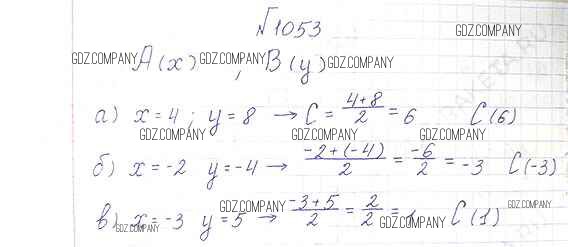 №1053
GDZ.COMPANY
GDZ.COMPANY A(x) GDZ.COMPANY, B(y) GDZ.COMPANY
а) x = 4 ; y = 8 → C = \frac{4+8}{2} = 6 C(6)
GDZ.COMPANY GDZ.COMPANY GDZ.COMPANY
б) x = -2 y = -4 → \frac{-2+(-4)}{2} = \frac{-6}{2} = -3 C(-3)
GDZ.COMPANY GDZ.COMPANY
в) x = -3 y = 5 → \frac{-3+5}{2} = \frac{2}{2} = 1 C(1)
GDZ.COMPANY GDZ.COMPANY